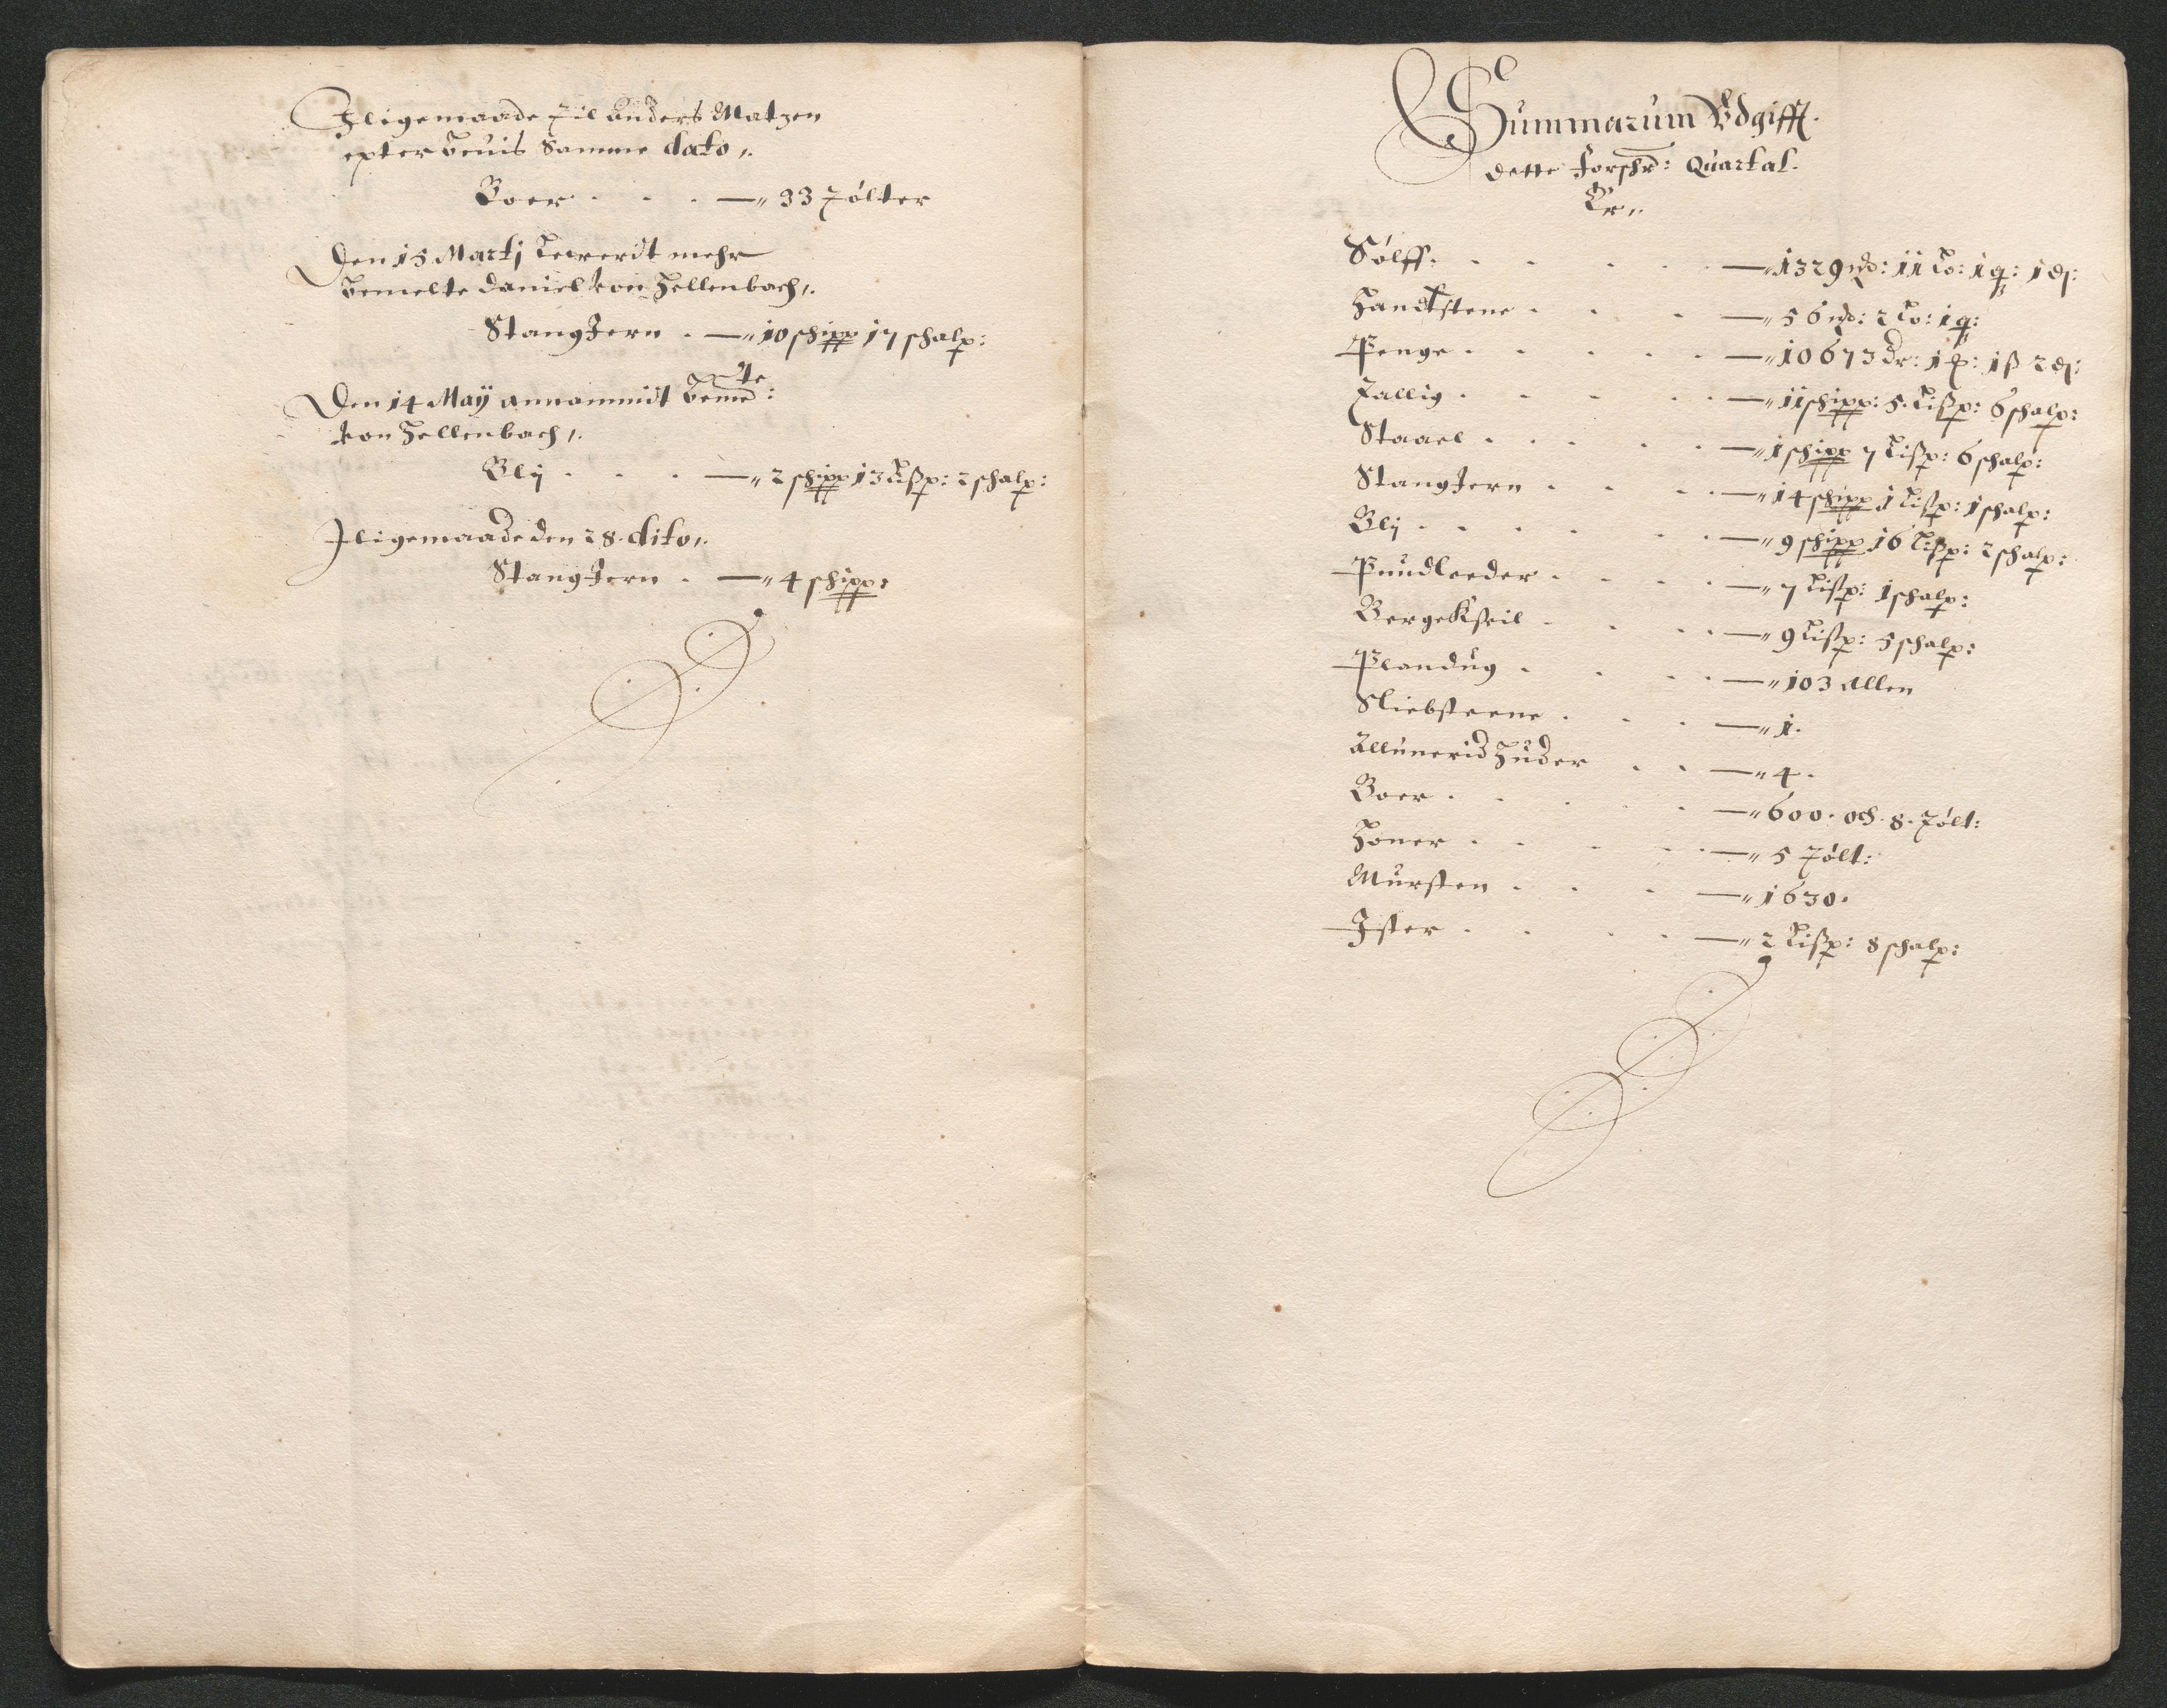 Jligemaade til Anders Matzen
epter beuis Samme dato,.
Boer . . . — 33 tólter
Den 15 Martj leverdt mehr
bemelte Daniel von Hellenbach,.
StangJern . — 10 schipp 17 schalp:
Den 14 Maÿ annammidt bemelte:
von Hellenbach,.
Blÿ . . . — 2 schipp 13 lißp: 2 schalp:
Jligemaade den 28. dito,.
StangJern . — 4 schipp:
Summarum Vdgifft.
dette forschr: Quartal.
Er,.
Sølff. . . . . — 1329 mk: 11 lo: 1 q: 1 d:
Handtstene . . . — 56 mk: 2 lo: 1 q:
Penge . . . . . — 10673 dr: 1 ort: 1 ß 2 d:
Tallig . . . . . — 11 schipp: 5. Lißp: 6 schalp:
Staael . . . . . — 1 schipp 7 Lißp: 6 schalp:
StangJern . . . — 14 schipp 1 Lißp: 1 schalp:
Blÿ . . . . . . — 9 schipp 16 Lißp: 2 schalp:
Pundleeder . . . . — 7 Lißp: 1 schalp:
BergeKseil . . . . — 9 Lißp: 5 schalp:
Plandug . . . . — 103 Allen
Sliebsteene . . . — 1.
Allunerid Huder . . — 4.
Boer . . . . . — 600. och. 8. tólt:
Honer . . . . . — 5 tólt:
Mursten . . . — 1630.
Jster . . . . — 2 Lißp: 8 schalp: